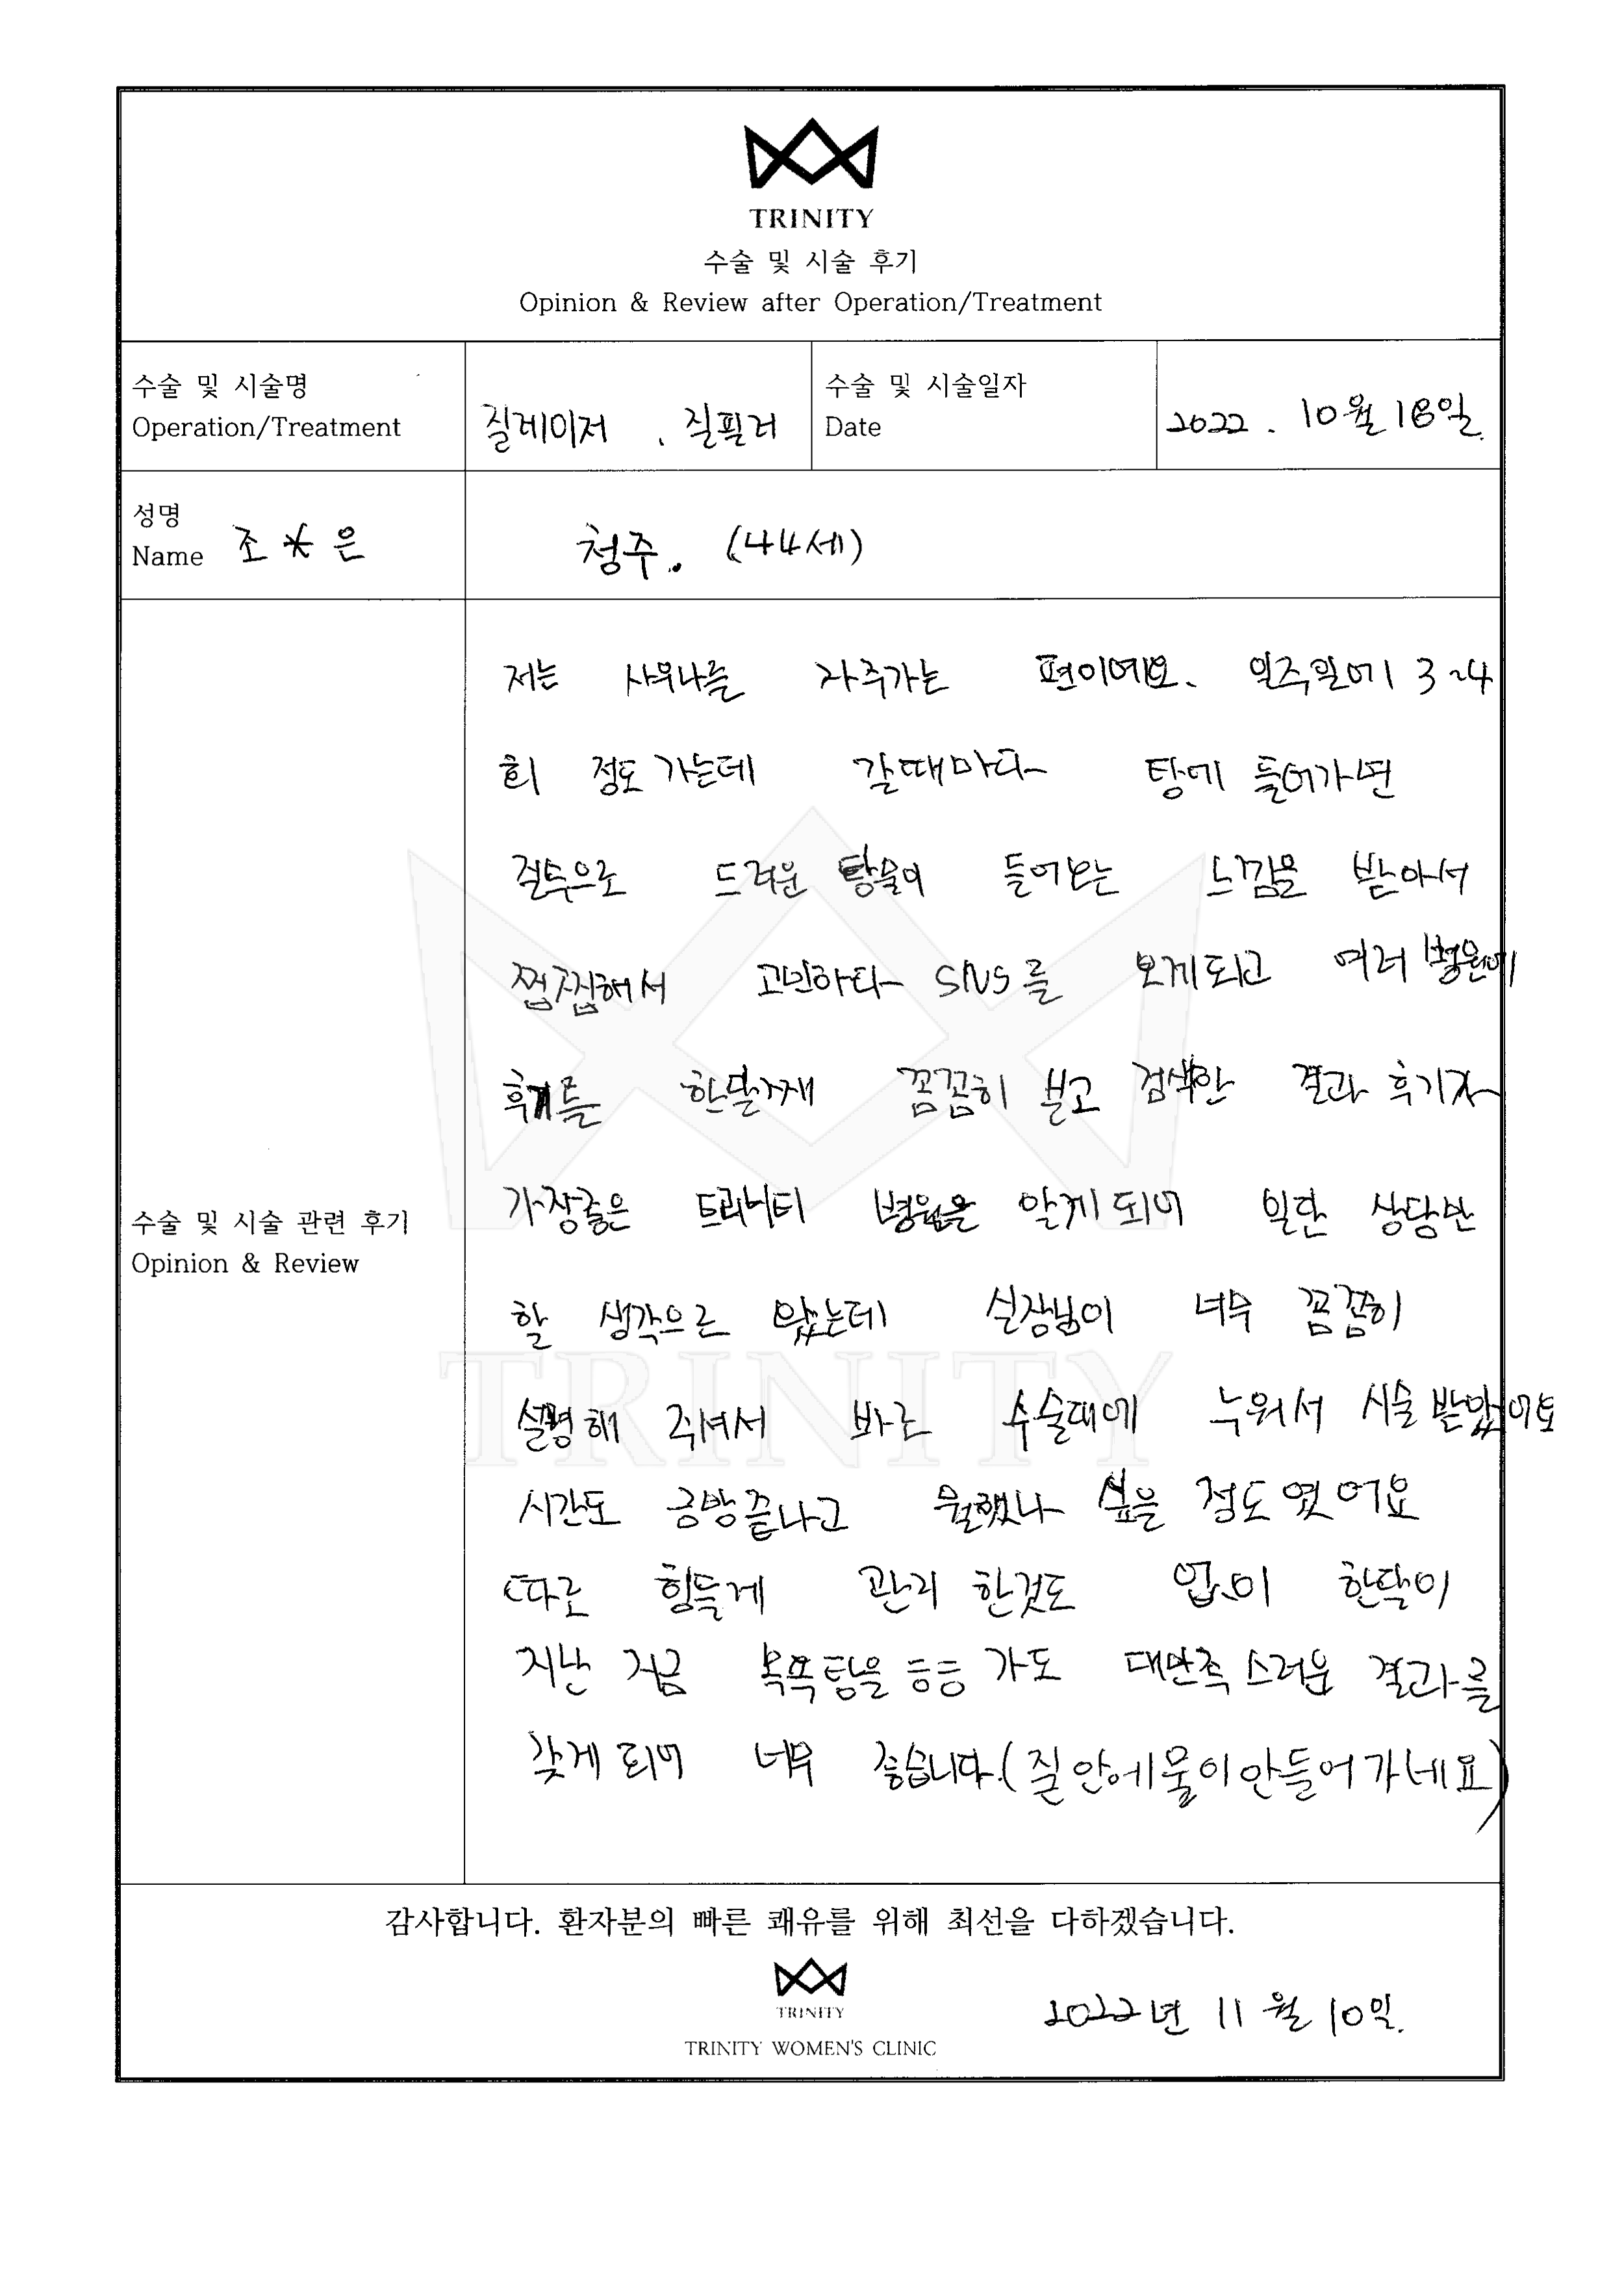 TRINITY
수술 및 시술 후기
Opinion & Review after Operation/Treatment
수술 및 시술명
Operation/Treatment
질레이저, 질필러
수술 및 시술일자
Date
2022. 10월 18일.
성명
Name 조*은
청주. (44세)
수술 및 시술 관련 후기
Opinion & Review
저는 사우나를 자주가는 편이에요. 일주일에 3~4
회 정도 가는데 갈때마다 탕에 들어가면
질속으로 드러운 탕물이 들어오는 느낌을 받아서
찝찝해서 고민하다 SNS를 보게되고 여러 병원에
후기를 한달가까이 꼼꼼히 보고 검색한 결과 후기가
가장좋은 트리니티 병원을 알게되어 일단 상담만
할 생각으로 왔는데 실장님이 너무 꼼꼼히
설명해 주셔서 바로 수술대에 누워서 시술 받았어요
시간도 금방끝나고 뭘했나 싶을 정도였어요
따로 힘들게 관리 한것도 없이 한달이
지난 지금 목욕탕을 등등 가도 대만족스러운 결과를
갖게되어 너무 좋습니다.(질안에물이안들어가네요)
감사합니다. 환자분의 빠른 쾌유를 위해 최선을 다하겠습니다.
TRINITY
TRINITY WOMEN'S CLINIC
2022년 11월 10일.
TRINITY